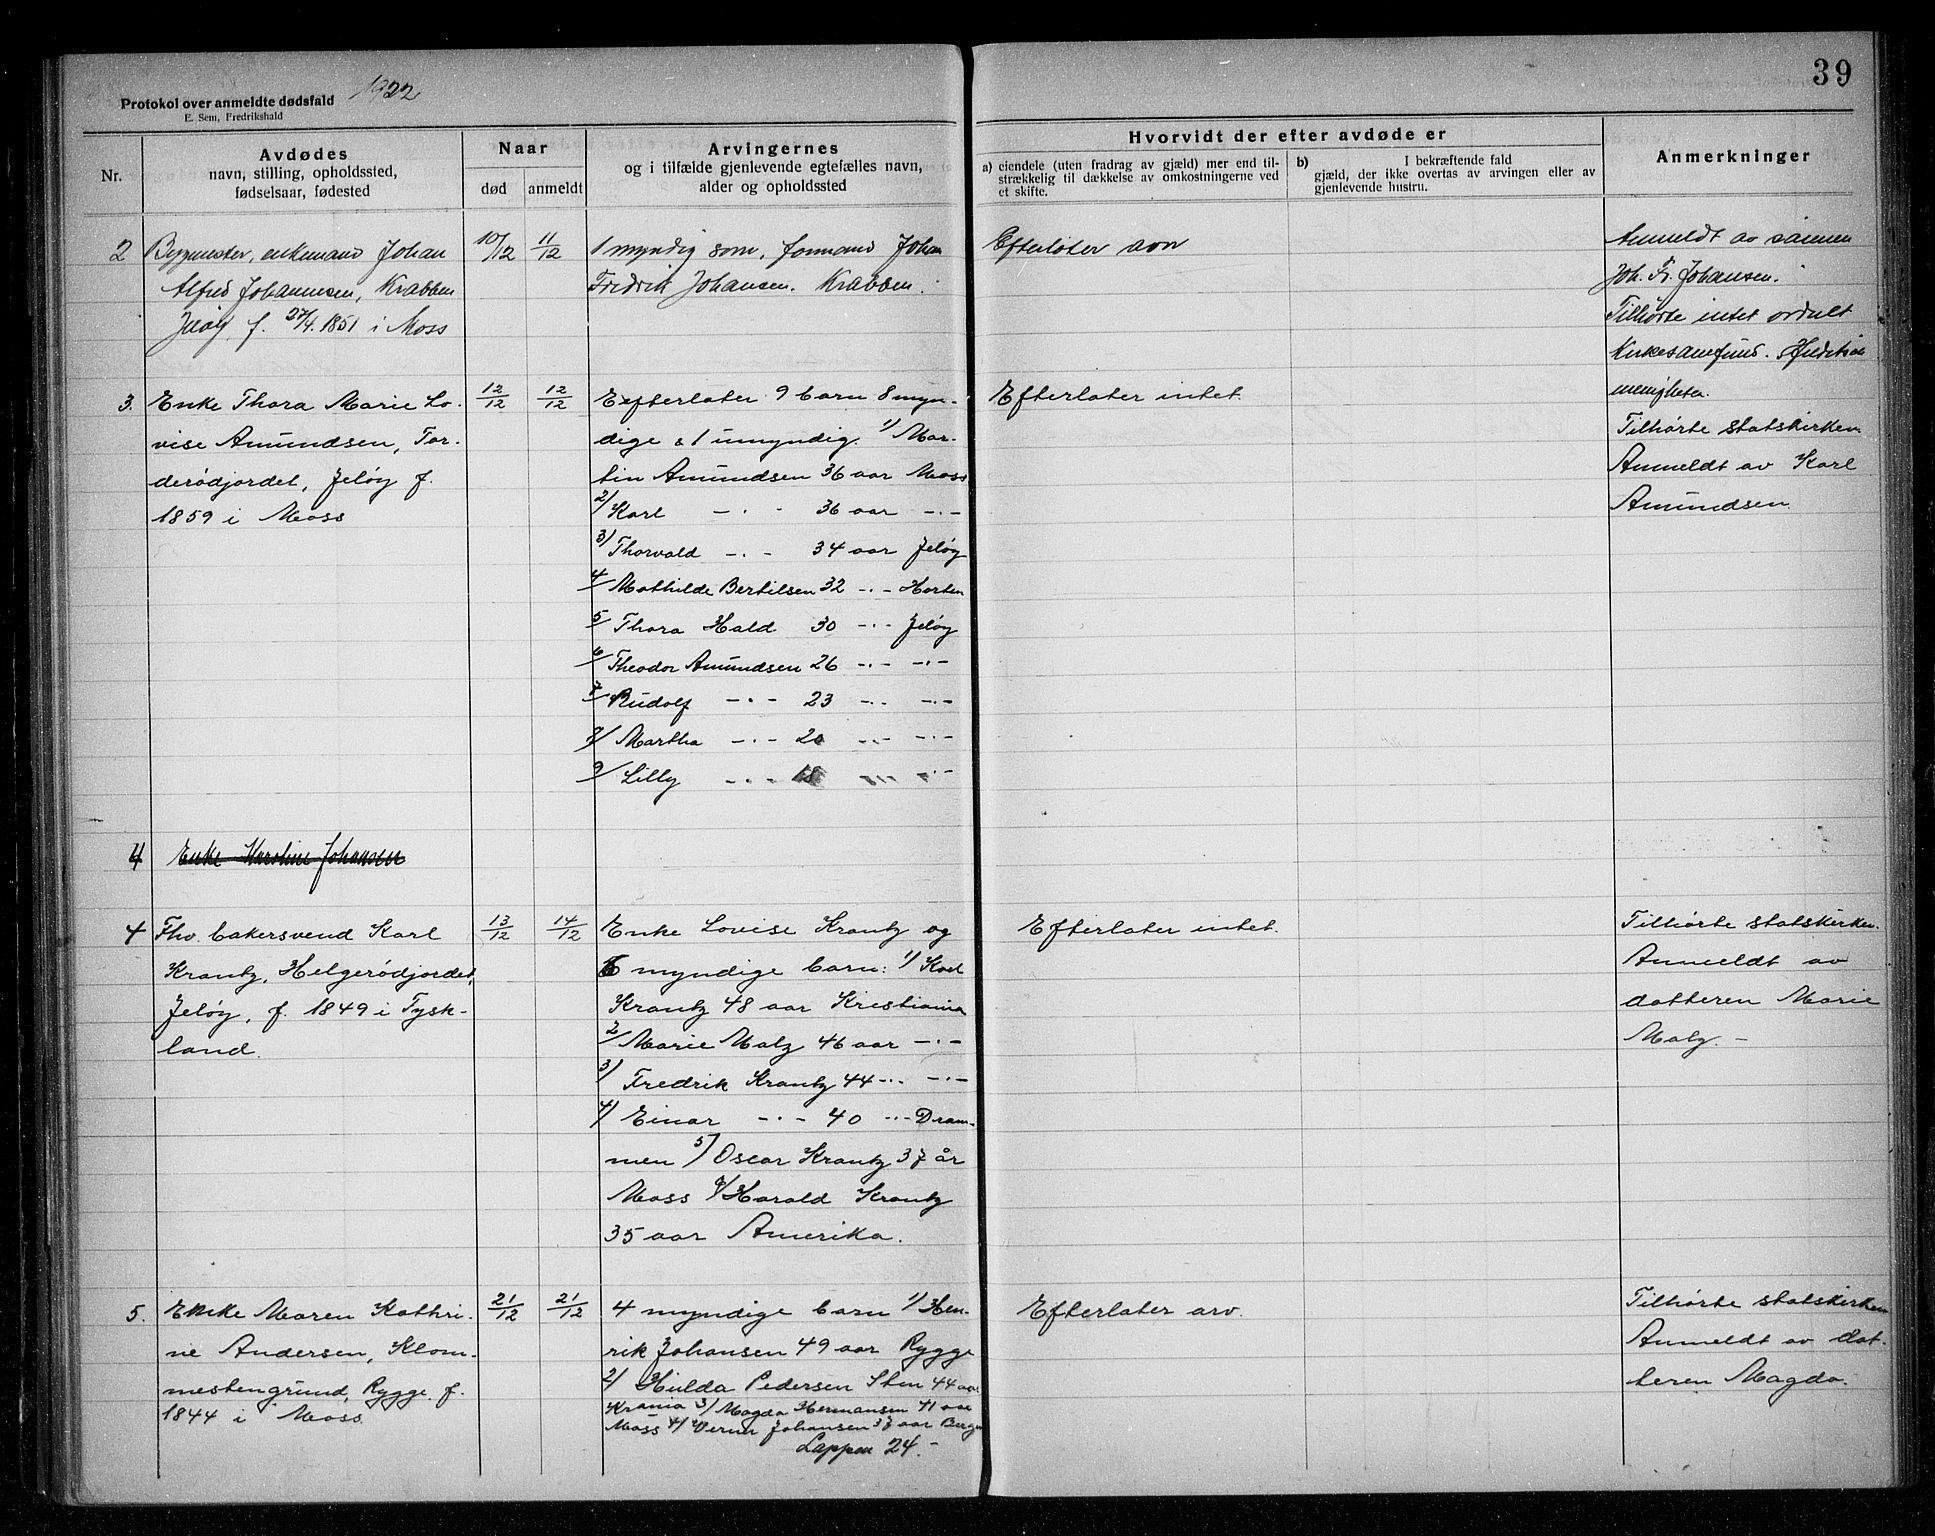 39
Protokol over anmeldte dødsfald 1922
E. Sem, Fredrikshald
Nr.
Avdødes
navn, stilling, opholdssted,
fødselsaar, fødested
Naar
død
anmeldt
Arvingernes
og i tilfælde gjenlevende egtefælles navn,
alder og opholdssted
Hvorvidt der efter avdøde er
a) eiendele (uten fradrag av gjæld) mer end til-
strækkelig til dækkelse av omkostningerne ved
et skifte.
b) I bekræftende fald
gjæld, der ikke overtas av arvingen eller av
gjenlevende hustru.
Anmerkninger
2
Bygmester, enkemand Johan
Alfred Johannesen, Krabben
Jeløy, f. 27/4. 1851 i Moss
10/12
11/12
1 myndig søn, formand Johan
Fredrik Johansen. Krabben.
Efterlater arv
Anmeldt av sønnen
Joh. Fr. Johansen.
Tilhørte intet ordnet
Kirkesamfund.
menigheten.
3.
Enke Thora Marie Lo-
vise Amundsen, Tor-
derødjordet, Jeløy f.
1859 i Moss
12/12
12/12
Efterlater 9 barn 8 myn-
dige & 1 umyndig. 1/ Mar-
tin Amundsen 36 aar Moss
2/ Karl -·- 36 aar -·-
3/ Thorvald -·- 34 aar Jeløy
4/ Mathilde Bertilsen 32 -·- Horten
5/ Thora Hald 30 -·- Jeløy
6/ Theodor Amundsen 26 -·- -·-
7/ Rudolf -·- 23 -·- -·-
8/ Martha -·- 20 -·- -·-
9/ Lilly -·- 18 -·- -·-
Efterlater intet.
Tilhørte statskirken.
Anmeldt av Karl
Amundsen
4
Enke Karoline Johansen
4
Fhv. bakersvend Karl
Krantz, Helgerødjordet,
Jeløy, f. 1849 i Tysk-
land.
13/12
14/12
Enke Lovise Krantz og
6 myndige barn: 1/ Karl
Krantz 48 aar Kristiania
2/ Marie Malz 46 aar -·-
3/ Fredrik Krantz 44 -·- -·-
4/ Einar -·- 40 -·- Dram-
men 5/ Oscar Krantz 37 år
Moss 6/ Harald Krantz
35 aar Amerika.
Efterlater intet.
Tilhørte statskirken.
Anmeldt av
datteren Marie
Malz. -
5.
Enke Maren Kathri-
ne Andersen, Klom-
mestengrund, Rygge f.
1844 i Moss.
21/12
21/12
4 myndige barn 1/ Hen-
rik Johansen 49 aar Rygge
2/ Hulda Pedersen Sten 44 aar
Krania 3/ Magda Hermansen 41 aar
Moss 4/ Verner Johansen 37 aar Bergen
Lappen 24. -
Efterlater arv.
Tilhørte statskirken
Anmeldt av dat-
teren Magda.